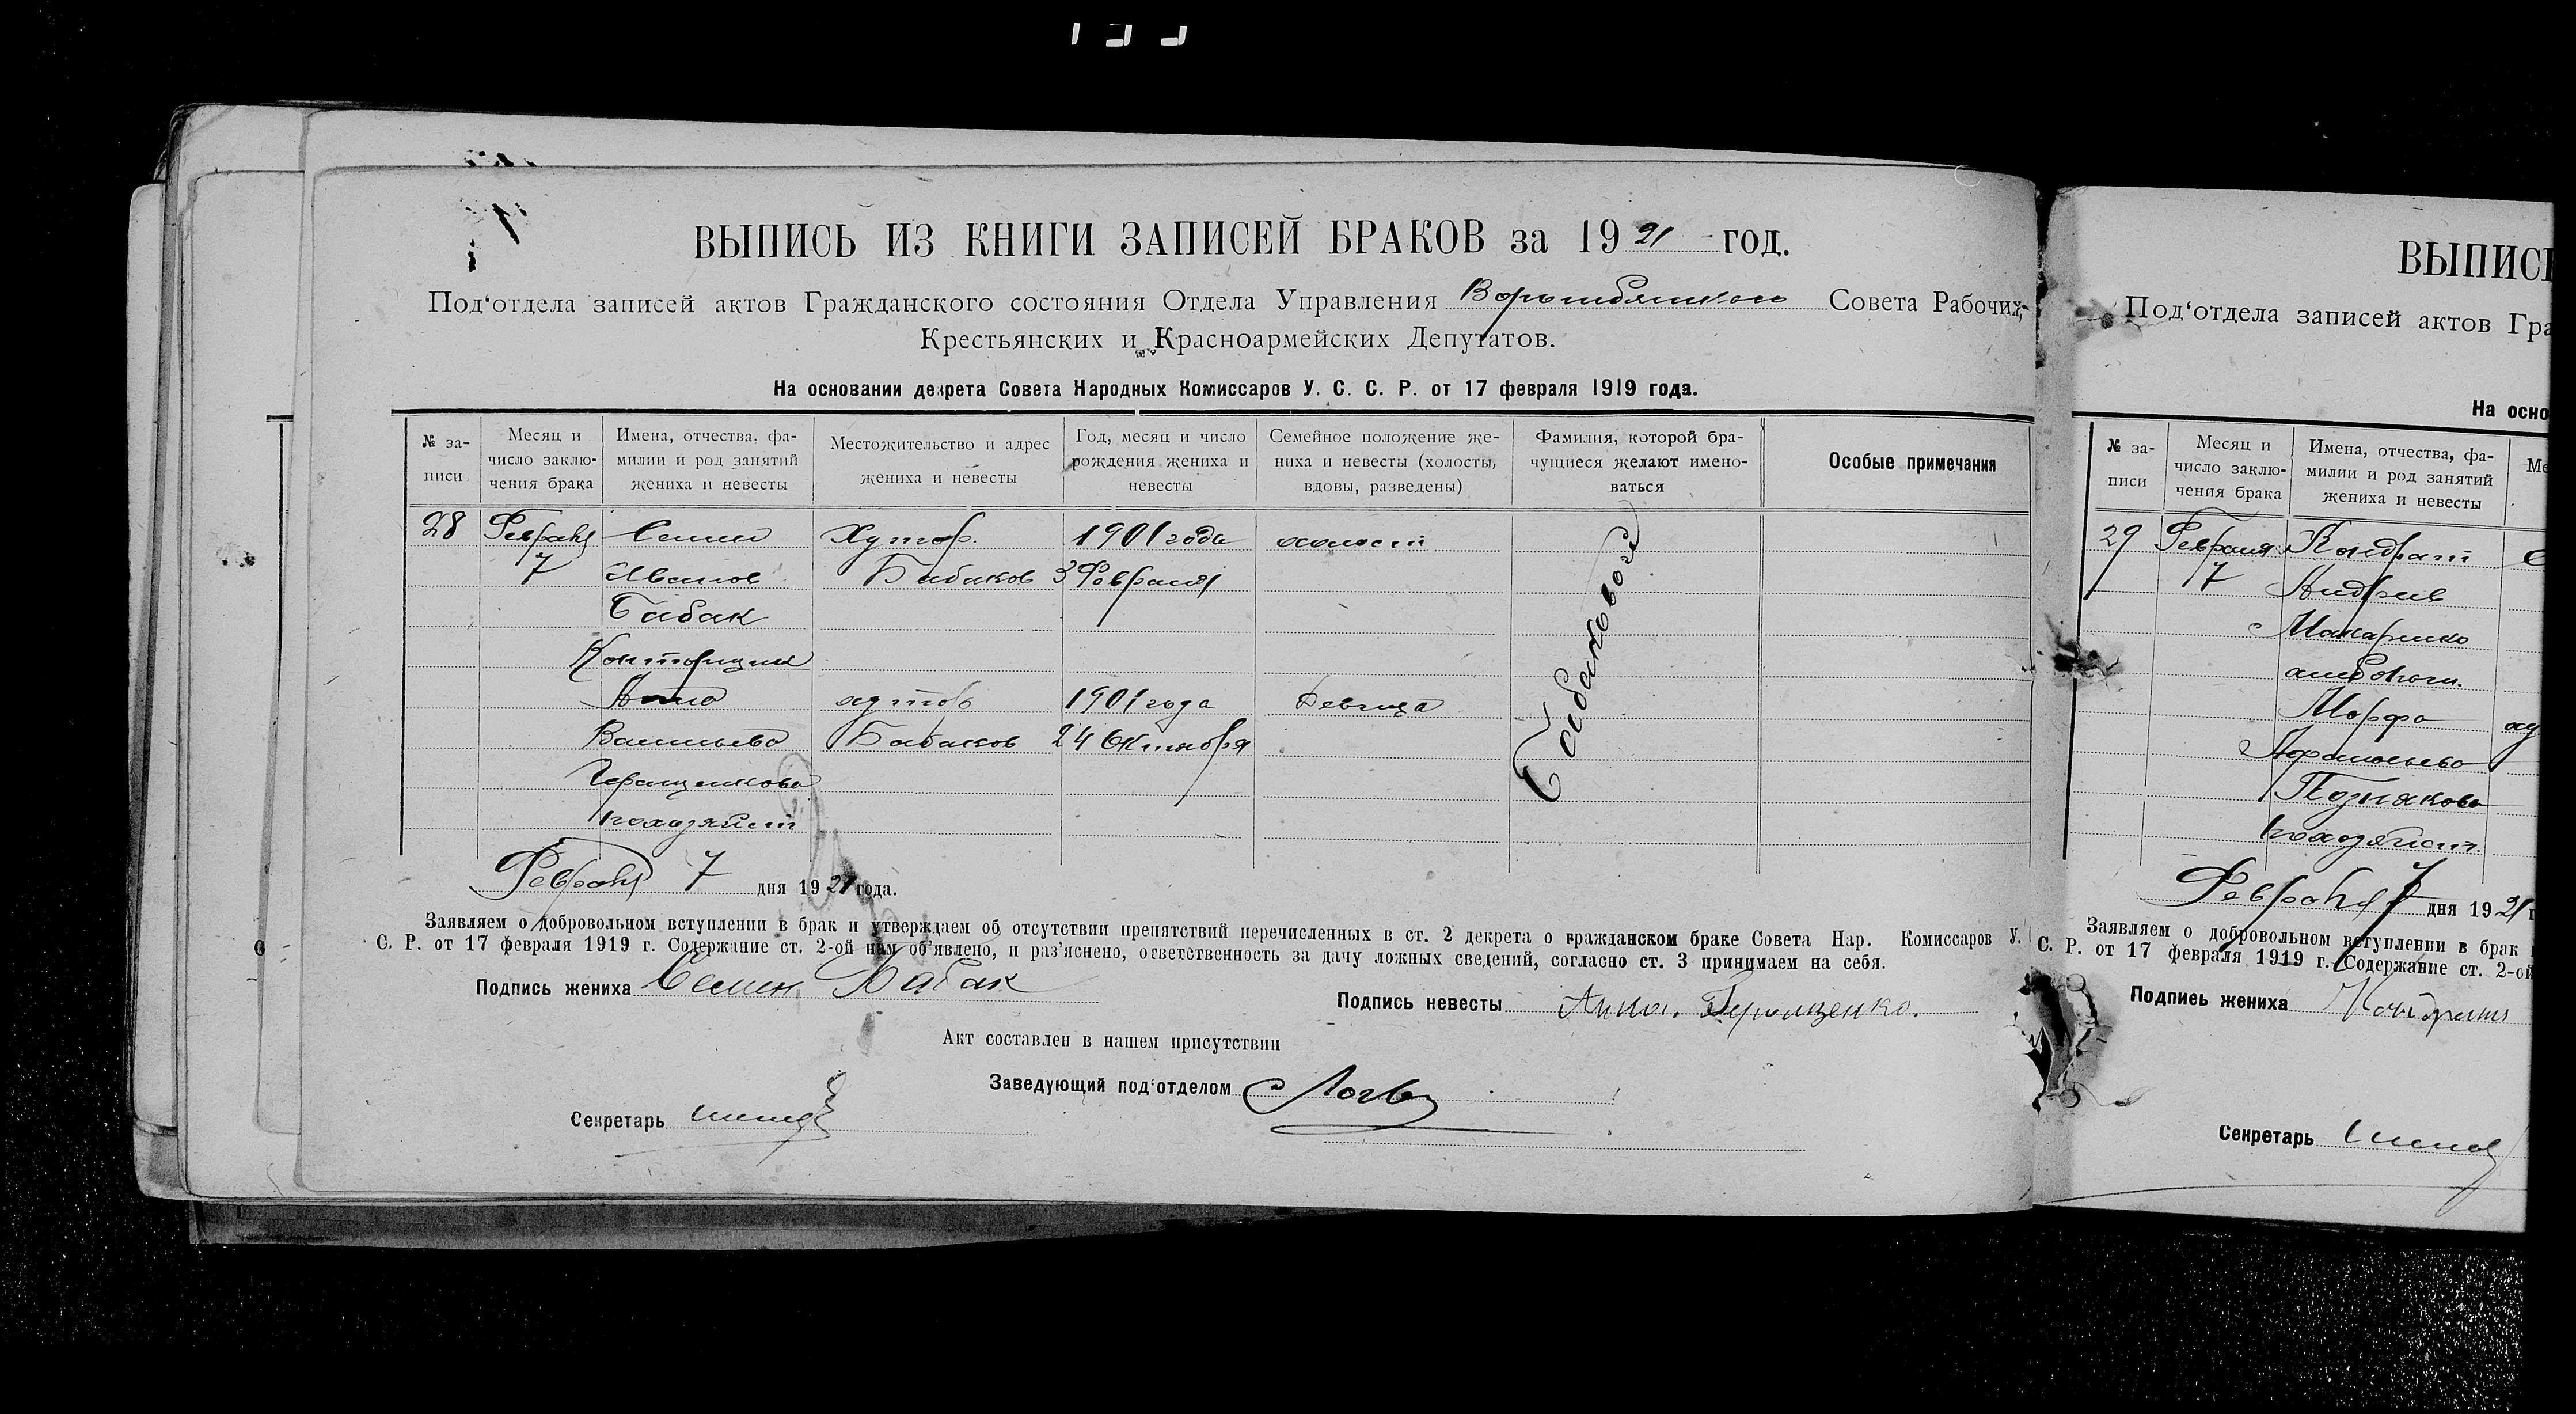 ВЫПИСЬ ИЗ КНИГИ ЗАПИСЕЙ БРАКОВ за 1921 год.
Под‘отдела записей актов Гражданского состояния Отдела Управления Совета Рабочих,
Крестьянских и Красноармейских Депутатов.
На основании декрета Совета Народных Комиссаров У. С. С. Р. от 17 февраля 1919 года.
№ за-
писи
Месяц и
число заклю-
чения брака
Имена, отчества, фа-
милии и род занятий
жениха и невесты
Местожительство и адрес
жениха и невесты
Год, месяц и число
рождения жениха и
невесты
Семейное положение же-
ниха и невесты (холосты,
вдовы, разведены)
Фамилия, которой бра-
чущиеся желают имено-
ваться
Особые примечания
28 Февраля Семен Хутор 1901 года холост
7 Иванов Бабаков 3 Февраля
Бабак
Конторщик
Анна хутор 1901 года Девица
Васильева Бабаков 24 Октября
Геращенкова
Бабаковой
Февраля 7 дня 1921 года.
Заявляем о добровольном вступлении в брак и утверждаем об отсутствии препятствий перечисленных в ст. 2 декрета о гражданском браке Совета Нар. Комиссаров У.
С. Р. от 17 февраля 1919 г. Содержание ст. 2-ой нам об’явлено, и раз’яснено, ответственность за дачу ложных сведений, согласно ст. 3 принимаем на себя.
Подпись жениха Семен Бабак
Подпись невесты Анна Геращенко.
Акт составлен в нашем присутствии
Заведующий под‘отделом
Секретарь
ВЫПИСЬ
Под‘отдела записей актов Гра
На осно
№ за-
писи
Месяц и
число заклю-
чения брака
Имена, отчества, фа-
милии и род занятий
жениха и невесты
Ме
29 Февраля Кондрат
7 Андреев
Макаренко
хлебопаш.
Марфа
Афанасьева
Познякова
Февраля 7 дня 1921 г
Заявляем о добровольном вступлении в брак
С. Р. от 17 февраля 1919 г. Содержание ст. 2-ой
Подпись жениха Кондрат
Секретарь